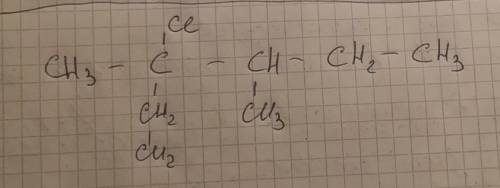 Cl
CH₃ – C – CH – CH₂ – CH₃
CH₂ CH₃
CH₂